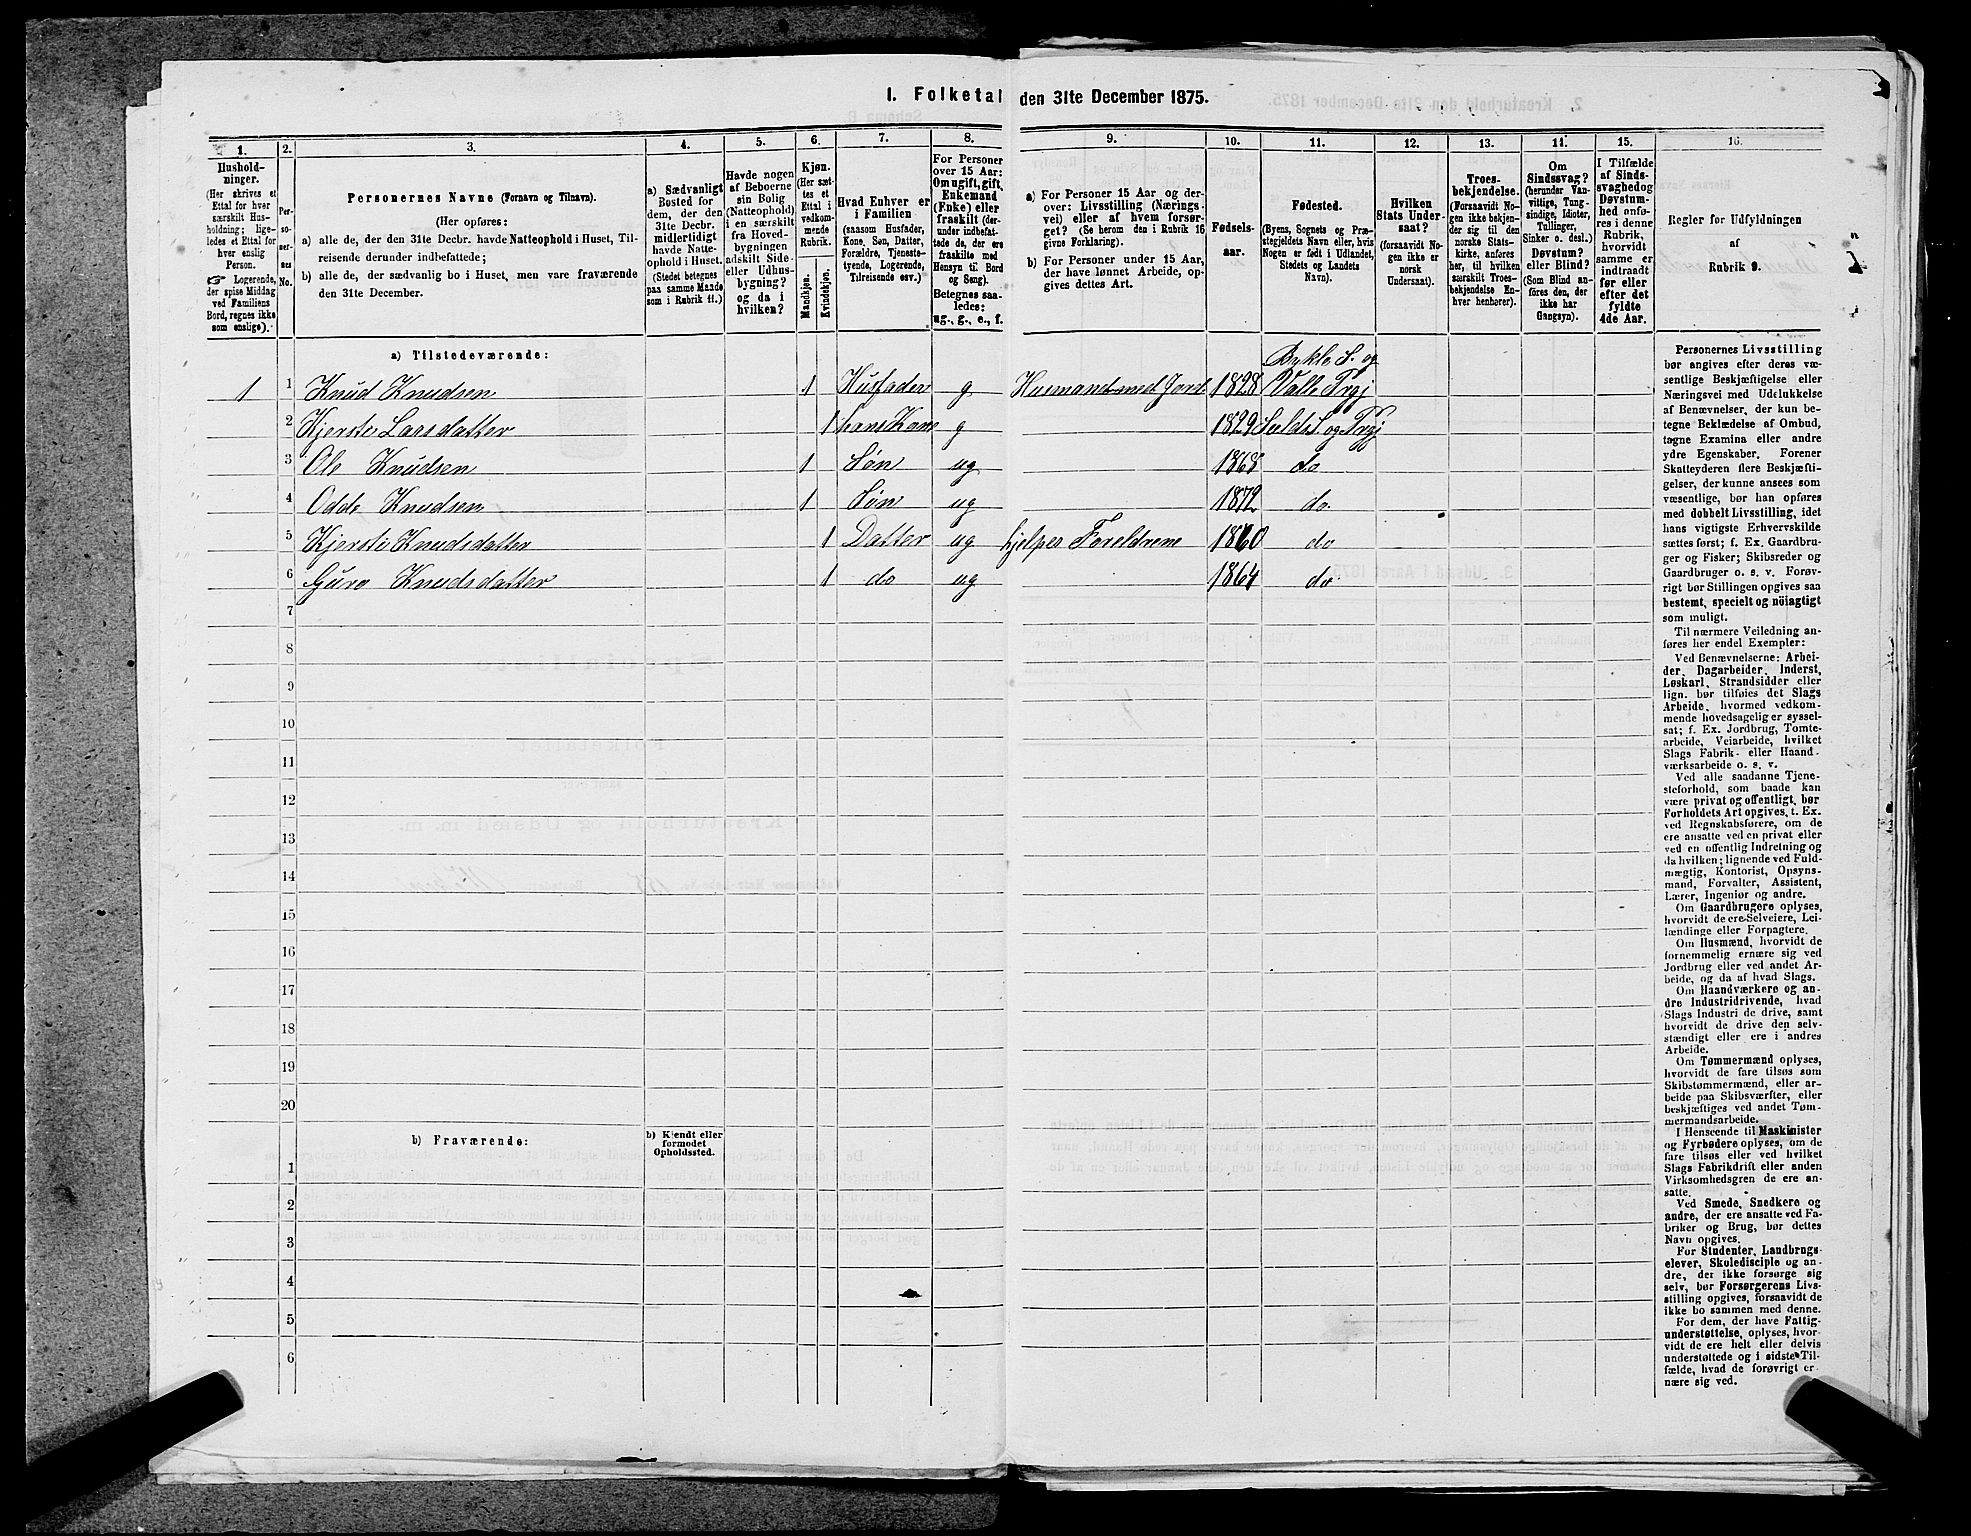 I. Folketal den 31te December 1875.
1. 2. 3. 4. 5. 6. 7. 8. 9. 10. 11. 12. 13. 14. 15. 16.
Hushold-
ninger.
(Her skrives et
Ettal for hver
særskilt Hus-
holdning; lige-
ledes et Ettal for
hver enslig
Person.
Logerende,
der spise Middag
ved Familiens
Bord, regnes ikke
som enslige).
Per-
soner-
nes
No.
Personernes Navne (Fornavn og Tilnavn).
(Her opføres:
a) alle de, der den 31te Decbr. havde Natteophold i Huset, Til-
reisende derunder indbefattede;
b) alle de, der sædvanlig bo i Huset, men vare fraværende
den 31te December.
a) Sædvanligt
Bosted for
dem, der den
31te Decbr.
midlertidigt
havde Natte-
ophold i Huset.
(Stedet betegnes
paa samme Maade
som i Rubrik 11.)
Havde nogen
af Beboerne
sin Bolig
(Natteophold)
i en særskilt
fra Hoved-
bygningen
adskilt Side-
eller Udhus-
bygning?
og da i
hvilken?
Kjøn.
(Her sæt-
tes et
Ettal i
vedkom-
mende
Rubrik.
Mandkjøn.
Kvindekjøn.
Hvad Enhver er
i Familien
(saasom Husfader,
Kone, Søn, Datter,
Forældre, Tjeneste-
tyende, Logerende,
Tilreisende osv.)
For Personer
over 15 Aar:
Om ugift, gift,
Enkemand
(Enke) eller
fraskilt (der-
under indbefat-
tede de, der ere
fraskilte med
Hensyn til Bord
og Seng).
Betegnes saa-
ledes:
ug., g., e., f.
a) For Personer 15 Aar og der-
over: Livsstilling (Nærings-
vei) eller af hvem forsør-
get? (Se herom den i Rubrik 16
givne Forklaring).
b) For Personer under 15 Aar,
der have lønnet Arbeide, op-
gives dettes Art.
Fødsels-
aar.
Fødested.
(Byens, Sognets og Præ-
stegjeldets Navn eller, hvis
Nogen er født i Udlandet,
Stedets og Landets
Navn).
Hvilken
Stats Under-
saat?
(forsaavidt No-
gen ikke er
norsk
Undersaat).
Troes-
bekjendelse.
(Forsaavidt No-
gen ikke bekjen-
der sig til den
norske Stats-
kirke, anføres
her, til hvilken
særskilt Troes-
bekjendelse En-
hver henhører).
Om
Sindssvag?
(herunder Van-
vittige, Tung-
sindige, Idioter,
Tullinger,
Sinker o. desl.)
Døvstum?
eller Blind?
(Som Blind an-
føres den, der
ikke har
Gangsyn).
I Tilfælde
af Sinds-
svaghed og
Døvstum-
hed anfø-
res i denne
Rubrik,
hvorvidt
samme er
indtraadt
før eller
efter det
fyldte
4de Aar.
Regler for Udfyldningen
af
Rubrik 9.
a) Tilstedeværende:
Bykle S. og
1 1 Knud Knudsen 1 Husfader g Husmand med Jord 1828 Valle Prgj
2 Kjersti Larsdatter 1 hans Kone g 1829 S. og Prgj
3 Ole Knudsen 1 Søn ug 1868 do
4 Odde Knudsen 1 Søn ug 1872 do.
5 Kjersti Knudsdatter 1 Datter ug hjelper Foreldrene 1860 do
6 Guro Knudsdatter 1 do ug 1864 do.
7
8
9
10
11
12
13
14
15
16
17
18
19
20
b) Fraværende:
b) Kjendt eller
formodet
Opholdssted.
1
2
3
4
5
6
Personernes Livsstilling
bør angives efter deres væ-
sentlige Beskjæftigelse eller
Næringsvei med Udelukkelse
af Benævnelser, der kun be-
tegne Beklædelse af Ombud,
tagne Examina eller andre
ydre Egenskaber. Forener
Skatteyderen flere Beskjæfti-
gelser, der kunne ansees som
væsentlige, bør han opføres
med dobbelt Livsstilling, idet
hans vigtigste Erhvervskilde
sættes først; f. Ex. Gaardbru-
ger og Fisker; Skibsreder og
Gaardbruger o. s. v. Forøv-
rigt bør Stillingen opgives saa
bestemt, specielt og nöiagtigt
som muligt.
Til nærmere Veiledning an-
føres her endel Exempler:
Ved Benævnelserne: Arbei-
der, Dagarbeider, Inderst,
Løskarl, Strandsidder eller
lign. bør tilføies det Slags
Arbeide, hvormed vedkom-
mende hovedsagelig er syssel-
sat; f. Ex. Jordbrug, Tomte-
arbeide, Veiarbeide, hvilket
Slags Fabrik- eller Haand-
værksarbeide o. s. v.
Ved alle saadanne Tjene-
steforhold, som baade kan
være privat og offentligt, bør
Forholdets Art opgives, t. Ex.
ved Regnskabsførere, om de
ere ansatte ved en privat eller
ved en offentlig Indretning og
da hvilken; lignende ved Fuld-
mægtig, Kontorist, Opsyns-
mand, Forvalter, Assistent,
Lærer, Ingeniør og andre.
Om Gaardbrugere oplyses,
hvorvidt de ere Selveiere, Lei-
lændinge eller Forpagtere.
Om Husmænd, hvorvidt de
fornemmelig ernære sig ved
Jordbrug eller ved andet Ar-
beide, og da af hvad Slags.
Om Haandværkere og an-
dre Industridrivende, hvad
Slags Industri de drive, samt
hvorvidt de drive den selv-
stændigt eller ere i andres
Arbeide.
Om Tømmermænd oplyses,
hvorvidt de fare tilsøs som
Skibstømmermænd, eller ar-
beide paa Skibsværfter, eller
beskjæftiges ved andet Tøm-
mermandsarbeide.
I Henseende til Maskinister
og Fyrbødere oplyses, om de
fare tilsøs eller ved hvilket
Slags Fabrikdrift eller anden
Virksomhedsgren de ere an-
satte.
Ved Smede, Snedkere og
andre, der ere ansatte ved Fa-
briker og Brug, bør dettes
Navn opgives.
For Studenter, Landbrugs-
elever, Skoledisciple og an-
dre, der ikke forsørge sig
selv, bør Forsørgerens Livs-
stilling opgives, forsaavidt de
ikke bo sammen med denne.
For dem, der have Fattig-
understøttelse, oplyses, hvor-
vidt de ere helt eller delvis
understøttede og i sidste Til-
fælde, hvad de forøvrigt er-
nære sig ved.